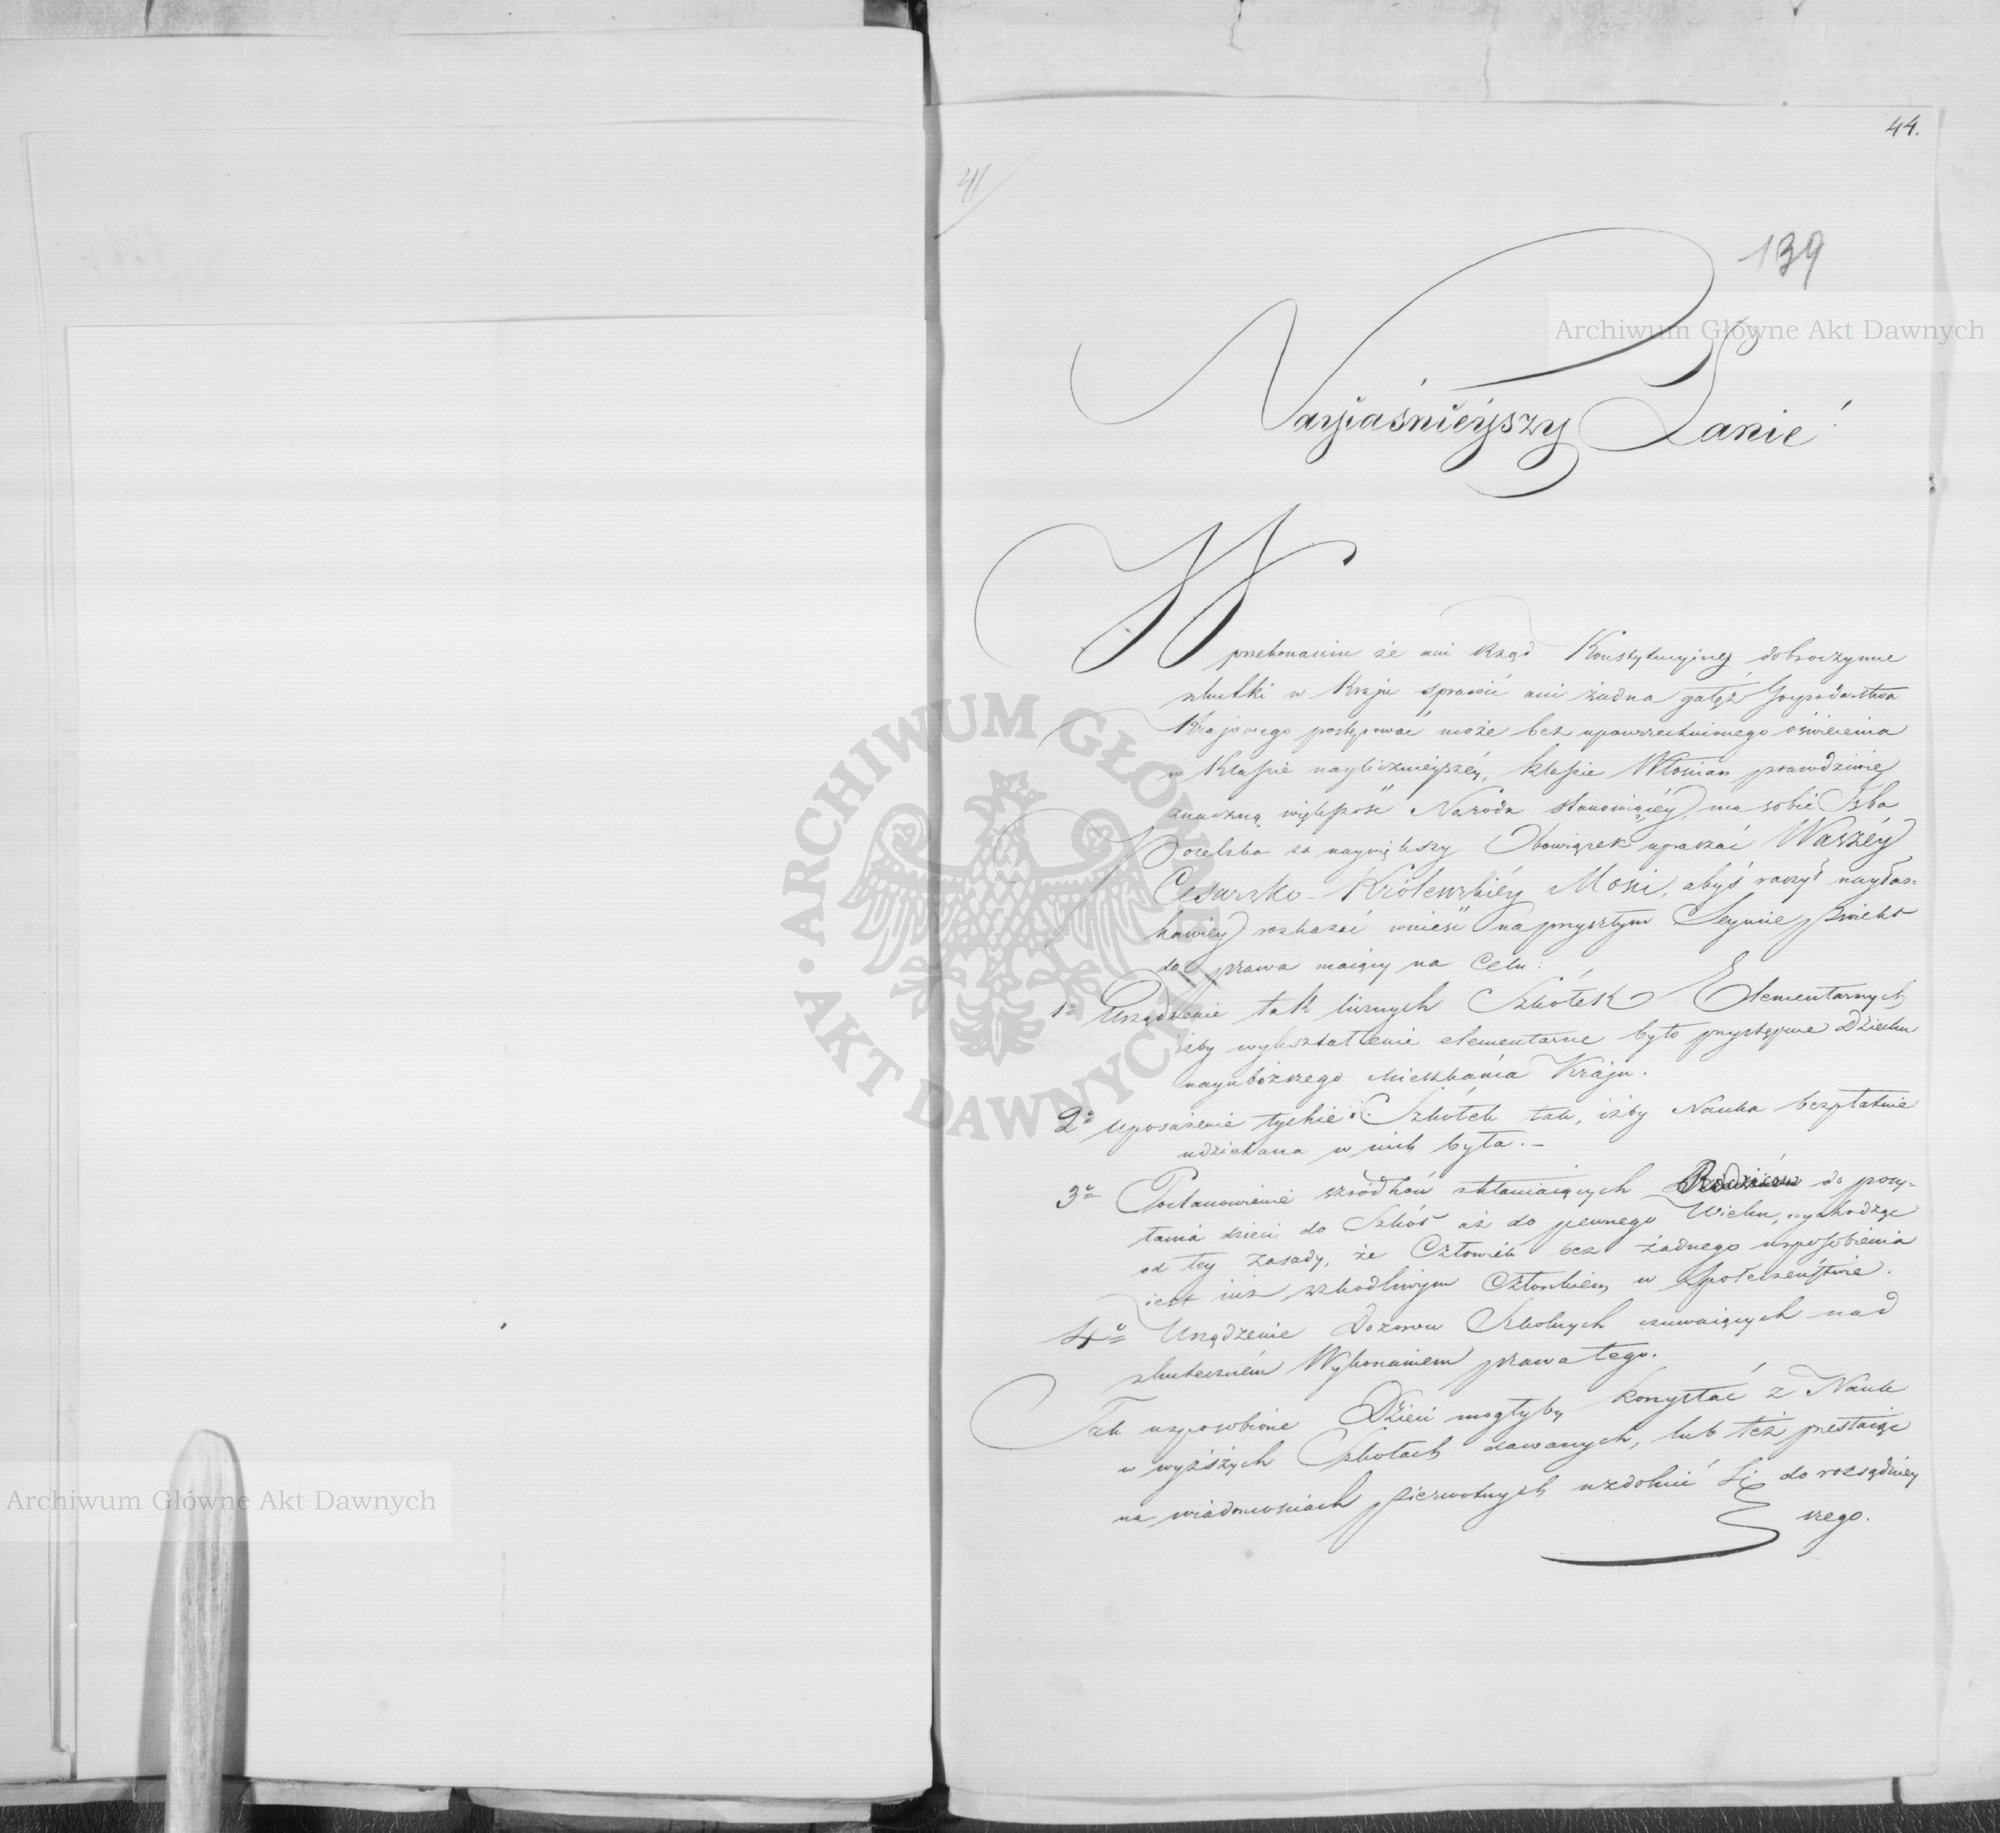 44.
41
139
Archiwum Główne Akt Dawnych
Nayiaśnieyszy Panie!
W przekonaniu że ani Rząd Konstytucyiney dobroczynne
skutki w Kraju sprawić ani żadna gałęź Gospodarstwa
Krajowego postępować może bez upowszechnionego oświecenia
w Klassie nayliczniéyszéy, klassie Włościan prawdziwie
znaczną większość Narodu stanowiącéy, ma sobie Izba
Poselska za naywiększy Obowiązek upraszać Waszéy
Cesarsko-Królewskiéy Mości, abyś raczył nayłas-
kawiéy rozkazać wnieść na przyszłym Seymie proiekt
do prawa maiący na Celu:
1o Urządzenie tak licznych Szkółek Elementarnych
iżby wykształcenie elementarne było przystępne Dziecku
nayuboższego Mieszkańca Kraju.
2o uposażenie tychże Szkółek tak, iżby Nauka bezpłatnie
udzielana w nich była.-
3o Postanowienie szrodków skłaniaiących Rodziców do posy-
łania dzieci do Szkół aż do pewnego Wieku, wychodząc
od tey zasady, że Człowiek bez żadnego usposobienia
iest iuż szkodliwym Członkiem w społeczeństwie.
4o Urządzenie Dozorów Szkolnych czuwaiących nad
skuteczném Wykonaniem prawa tego.
Tak usposobione Dzieci mogłyby korzystać z Nauk
w wyższych Szkołach dawanych, lub też przestaiąc
na wiadomościach pierwotnych uzdolnić się do rozsądniey
szego.
ARCHIWUM GŁÓWNE
AKT DAWNYCH
Archiwum Główne Akt Dawnych